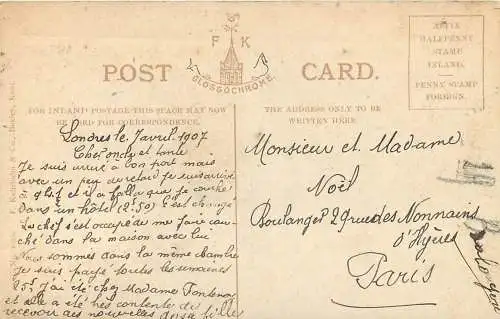 F K
GLOSSOCHROME.
POST CARD.
AFFIX
HALFPENNY
STAMP
INLAND.
PENNY STAMP
FOREIGN.
FOR INLAND POSTAGE THIS SPACE MAY NOW
BE USED FOR CORRESPONDENCE.
THE ADDRESS ONLY TO BE
WRITTEN HERE.
Londres le 7 avril 1907
Cher oncle et tante
Je suis arrivé à bon port mais
avec un peu de retard je suis arrivé
à 9h½ et il a fallu que je couche
dans un hôtel (2f 50) C'est changé
Le chef s'est occupé de me faire cou-
ché dans la maison avec lui
Nous sommes dans la même chambre
Je suis payé toutes les semaines
25f. J'ai été chez Madame Fontenoy
et elle a été très contente
recevoir des nouvelles de sa fille
Monsieur et Madame
Noël
Boulanger 29 rue des Nonnains
d'Hyères
Paris